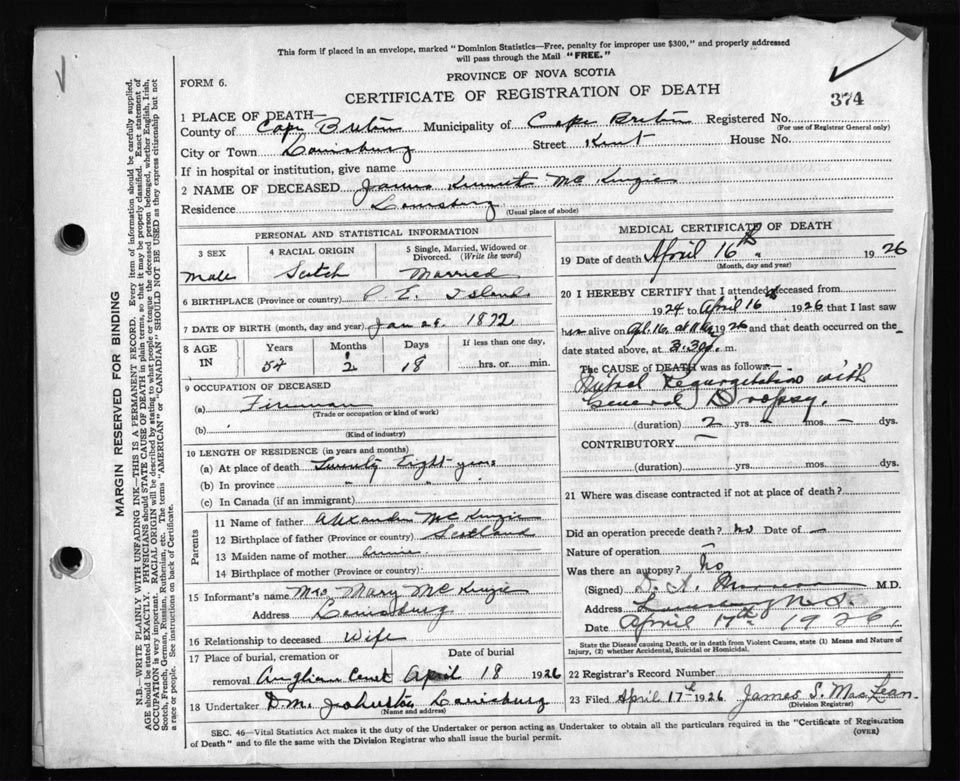 This form if placed in an envelope, marked "Dominion Statistics—Free, penalty for improper use $300," and properly addressed
will pass through the Mail "FREE."
PROVINCE OF NOVA SCOTIA
FORM 6.
CERTIFICATE OF REGISTRATION OF DEATH
374
1 PLACE OF DEATH—
County of Cape Breton Municipality of Cape Breton Registered No.
(For use of Registrar General only)
City or Town Louisburg Street Kent House No.
If in hospital or institution, give name
2 NAME OF DECEASED James Kennet McKenzie
Residence Louisburg (Usual place of abode)
PERSONAL AND STATISTICAL INFORMATION
3 SEX 4 RACIAL ORIGIN 5 Single, Married, Widowed or Divorced. (Write the word)
Male Scotch Married
6 BIRTHPLACE (Province or country) P E Island
7 DATE OF BIRTH (month, day and year) Jan 29 1872
8 AGE IN Years Months Days If less than one day,
54 2 18 hrs. or min.
9 OCCUPATION OF DECEASED
(a) Fireman
(Trade or occupation or kind of work)
(b)
(Kind of industry)
10 LENGTH OF RESIDENCE (in years and months)
(a) At place of death Twenty Eight yrs
(b) In province " " "
(c) In Canada (if an immigrant)
Parents
11 Name of father Alexander McKenzie
12 Birthplace of father (Province or country) Scotland
13 Maiden name of mother Annie
14 Birthplace of mother (Province or country)
15 Informant's name Mrs Mary McKenzie
Address Louisburg
16 Relationship to deceased Wife
17 Place of burial, cremation or removal Date of burial
Anglican Cemt April 18 1926
18 Undertaker D.M. Johnston Louisburg
(Name and address)
MEDICAL CERTIFICATE OF DEATH
19 Date of death April 16th 1926
(Month, day and year)
20 I HEREBY CERTIFY that I attended deceased from
1924 to April 16th 1926 that I last saw
him alive on Apl. 16, at 1926 and that death occurred on the
date stated above, at 3.30 m.
The CAUSE of DEATH was as follows:—
Mitral Regurgitation with
General Dropsy.
(duration) 2 yrs — mos. — dys.
CONTRIBUTORY —
(duration) yrs. mos. dys.
21 Where was disease contracted if not at place of death?
Did an operation precede death? no Date of —
Nature of operation —
Was there an autopsy? No
(Signed) D. A. M.D.
Address Louisburg N.S.
Date April 17th 1926.
State the Disease causing Death, or in death from Violent Causes, state (1) Means and Nature of
Injury, (2) whether Accidental, Suicidal or Homicidal.
22 Registrar's Record Number
23 Filed April 17th 1926 James S. MacLean
(Division Registrar)
SEC. 46—Vital Statistics Act makes it the duty of the Undertaker or person acting as Undertaker to obtain all the particulars required in the "Certificate of Registration
of Death" and to file the same with the Division Registrar who shall issue the burial permit. (OVER)
MARGIN RESERVED FOR BINDING
N.B.—WRITE PLAINLY WITH UNFADING INK—THIS IS A PERMANENT RECORD. Every item of information should be carefully supplied.
AGE should be stated EXACTLY. PHYSICIANS should STATE CAUSE OF DEATH in plain terms, so that it may be properly classified. Exact statement of
OCCUPATION is very important. RACIAL ORIGIN will be described by stating to what people or tongue the deceased person belonged, whether English, Irish,
Scotch, French, German, Russian, Ruthenian, etc. The terms "AMERICAN" or "CANADIAN" SHOULD NOT BE USED as they express citizenship but not
a race or people. See instructions on back of Certificate.